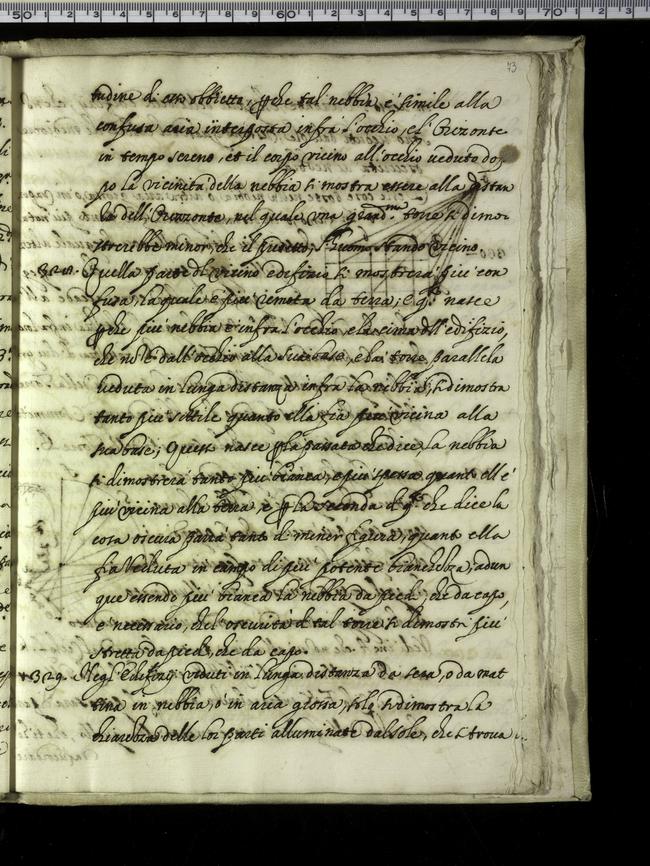 73
tudine di esso obbietto, perche tal nebbia è simile alla
confusa aria interposta infra l'occhio, el' Orizonte
in tempo sereno, et il corpo vicino all'occhio veduto do,
po la vicinità della nebbia si mostra essere alla distan
za dell'Orizonte, nel quale una grand.ma torre si dimo
strerebbe minor, che il predetto, l'huomo stando vicino.
328. Quella parte del vicino edifizio si mostrerà più con
fusa, la quale è più remota da terra; e q.o nasce
perche più nebbia è infra l'occhio, e la cima dell'edifizio,
che no' è dall'occhio alla sua base, e la torre parallela
veduta in lunga distanza infra la nebbia, si dimostra
tanto più sottile quanto ella fia più vicina alla
sua base; Questo nasce per la passata che dice, la nebbia
si dimostrerà tanto più bianca, e più spessa, quanto ell'è
più vicina alla terra, e per la seconda di q.o che dice la
cosa oscura parrà tanto di minor figura, quanto ella
fia veduta in campo di più potente bianchezza; adun
que essendo più bianca la nebbia da piedi, che da capo,
è necessario, che l'oscurità di tal torre si dimostri più
stretta da piedi, che da capo.
329. Negl'Edifizij veduti in lunga distanza da sera, o da mat
tina in nebbia, o in aria grossa, solo si dimostra la
chiarezza delle lor parti alluminate dal sole, che si trova